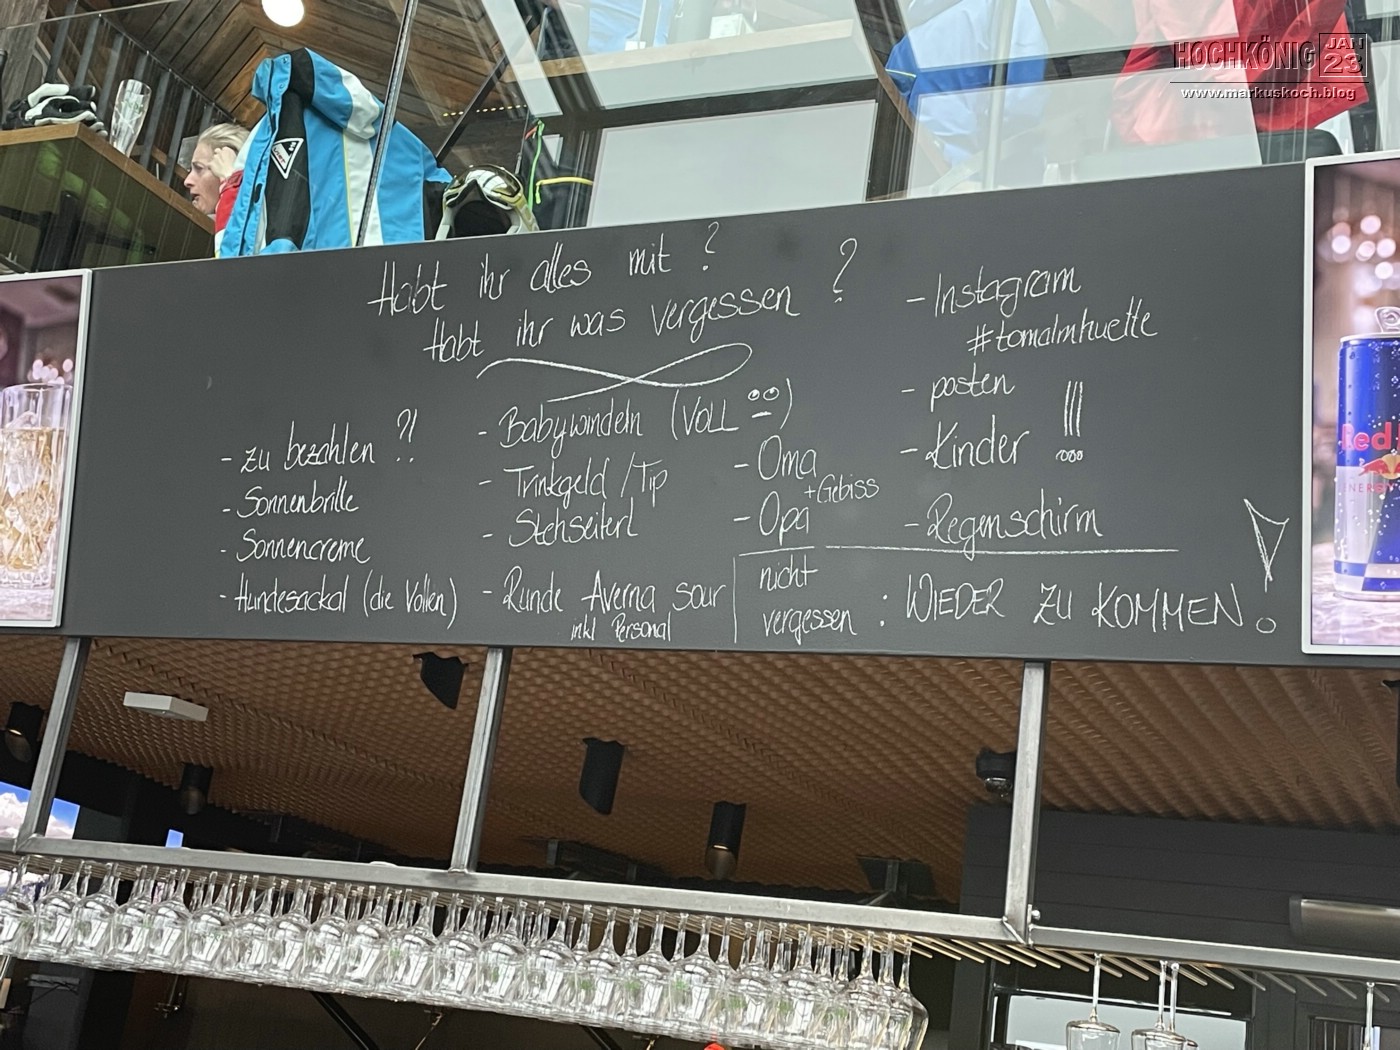 HOCHKÖNIG JAN 23
www.markuskoch.blog
Habt ihr alles mit ?
Habt ihr was vergessen ?
- zu bezahlen ?!
- Sonnenbrille
- Sonnencreme
- Hundesackal (die Vollen)
- Babywindeln (VOLL )
- Trinkgeld / Tip
- Stehseiterl
- Runde Averna sour
inkl Personal
- Oma
- Opa +Gebiss
- Instagram
#tomalmhuette
- posten
- Kinder !!!
- Regenschirm
nicht
vergessen : WIEDER ZU KOMMEN !
Red
ENER